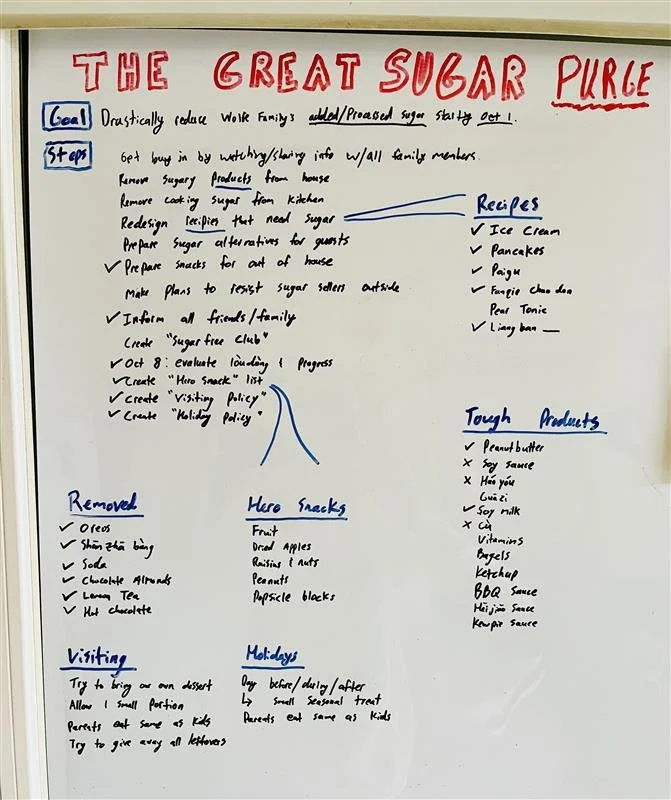 THE GREAT SUGAR PURGE
Goal Drastically reduce Wolfe Family's added/Processed sugar starting Oct 1.
Steps
Get buy in by watching/sharing info w/all family members.
Remove sugary products from house
Remove cooking sugar from kitchen
Redesign recipies that need sugar
Prepare sugar alternatives for guests
✓ Prepare snacks for out of house
Make plans to resist sugar sellers outside
✓ Inform all friends/family
Create "Sugar free club"
✓ Oct 8: evaluate & Progress
✓ Create "Hero Snack" list
✓ Create "Visiting Policy"
✓ Create "Holiday Policy"
Recipes
✓ Ice Cream
✓ Pancakes
✓ Paigu
✓ Fanqie chao dan
Pear Tonic
✓ Liang ban __
Tough Products
✓ Peanutbutter
x Soy sauce
x Háo yóu
Guāzi
✓ Soy milk
x Cù
Vitamins
Bagels
Ketchup
BBQ Sauce
Hǎi jiào Sauce
Kewpie Sauce
Removed
✓ Oreos
✓ Shān zhā bǐng
✓ Soda
✓ Chocolate Almonds
✓ Lemon Tea
✓ Hot chocolate
Hero Snacks
Fruit
Dried Apples
Raisins & nuts
Peanuts
Popsicle blocks
Visiting
Try to bring our own dessert
Allow 1 small portion
Parents eat same as kids
Try to give away all leftovers
Holidays
Day before/during/after
↳ small seasonal treat
Parents eat same as kids